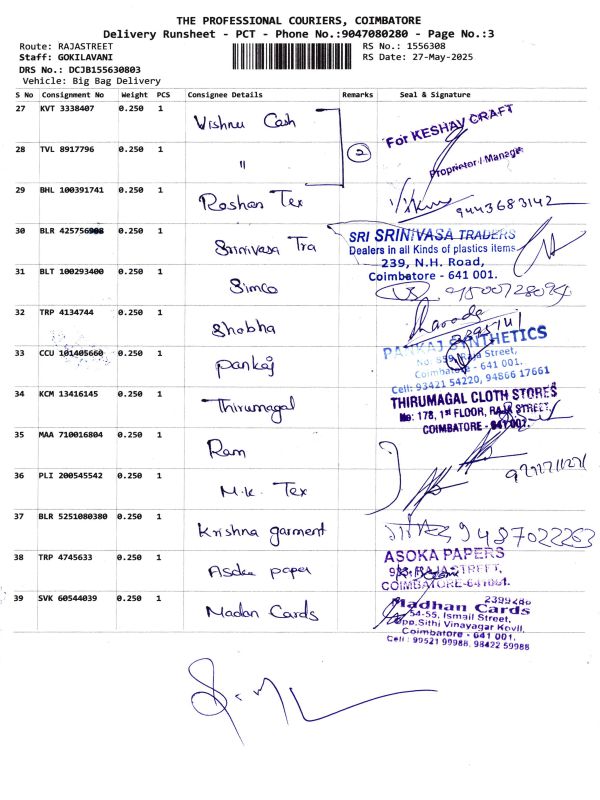 THE PROFESSIONAL COURIERS, COIMBATORE
Delivery Runsheet - PCT - Phone No.:9047080280 - Page No.:3
Route: RAJASTREET
RS No.: 1556308
Staff: GOKILAVANI
RS Date: 27-May-2025
DRS No.: DCJB155630803
Vehicle: Big Bag Delivery
S No Consignment No Weight PCS Consignee Details Remarks Seal & Signature
27 KVT 3338407 0.250 1 Vishnu Cash
For KESHAV CRAFT
28 TVL 8917796 0.250 1 " 2
Proprietor / Manager
29 BHL 100391741 0.250 1 Roshan Tex
9443683142
30 BLR 425756908 0.250 1 Srinivasa Tra
SRI SRINIVASA TRADERS
Dealers in all Kinds of plastics items
239, N.H. Road,
Coimbatore - 641 001.
31 BLT 100293400 0.250 1 Simco
32 TRP 4134744 0.250 1 Shobha
Sharada
33 CCU 101405660 0.250 1 Pankaj
PANKAJ SYNTHETICS
No: 559, Raja Street,
Coimbatore - 641 001.
Cell: 93421 54220, 94866 17661
34 KCM 13416145 0.250 1 Thirumagal
THIRUMAGAL CLOTH STORES
No: 178, 1st FLOOR, RAJA STREET,
COIMBATORE - 641 001.
35 MAA 710016804 0.250 1 Ram
36 PLI 200545542 0.250 1 M.K. Tex
37 BLR 5251080380 0.250 1 Krishna garment
9487022263
38 TRP 4745633 0.250 1 Asoka paper
ASOKA PAPERS
RAJASTREET,
COIMBATORE-641001.
39 SVK 60544039 0.250 1 Madan Cards
2399286
Madhan Cards
54-55, Ismail Street,
Opp.Sithi Vinayagar Kovil,
Coimbatore - 641 001.
Cell : 99521 99988, 98422 59988